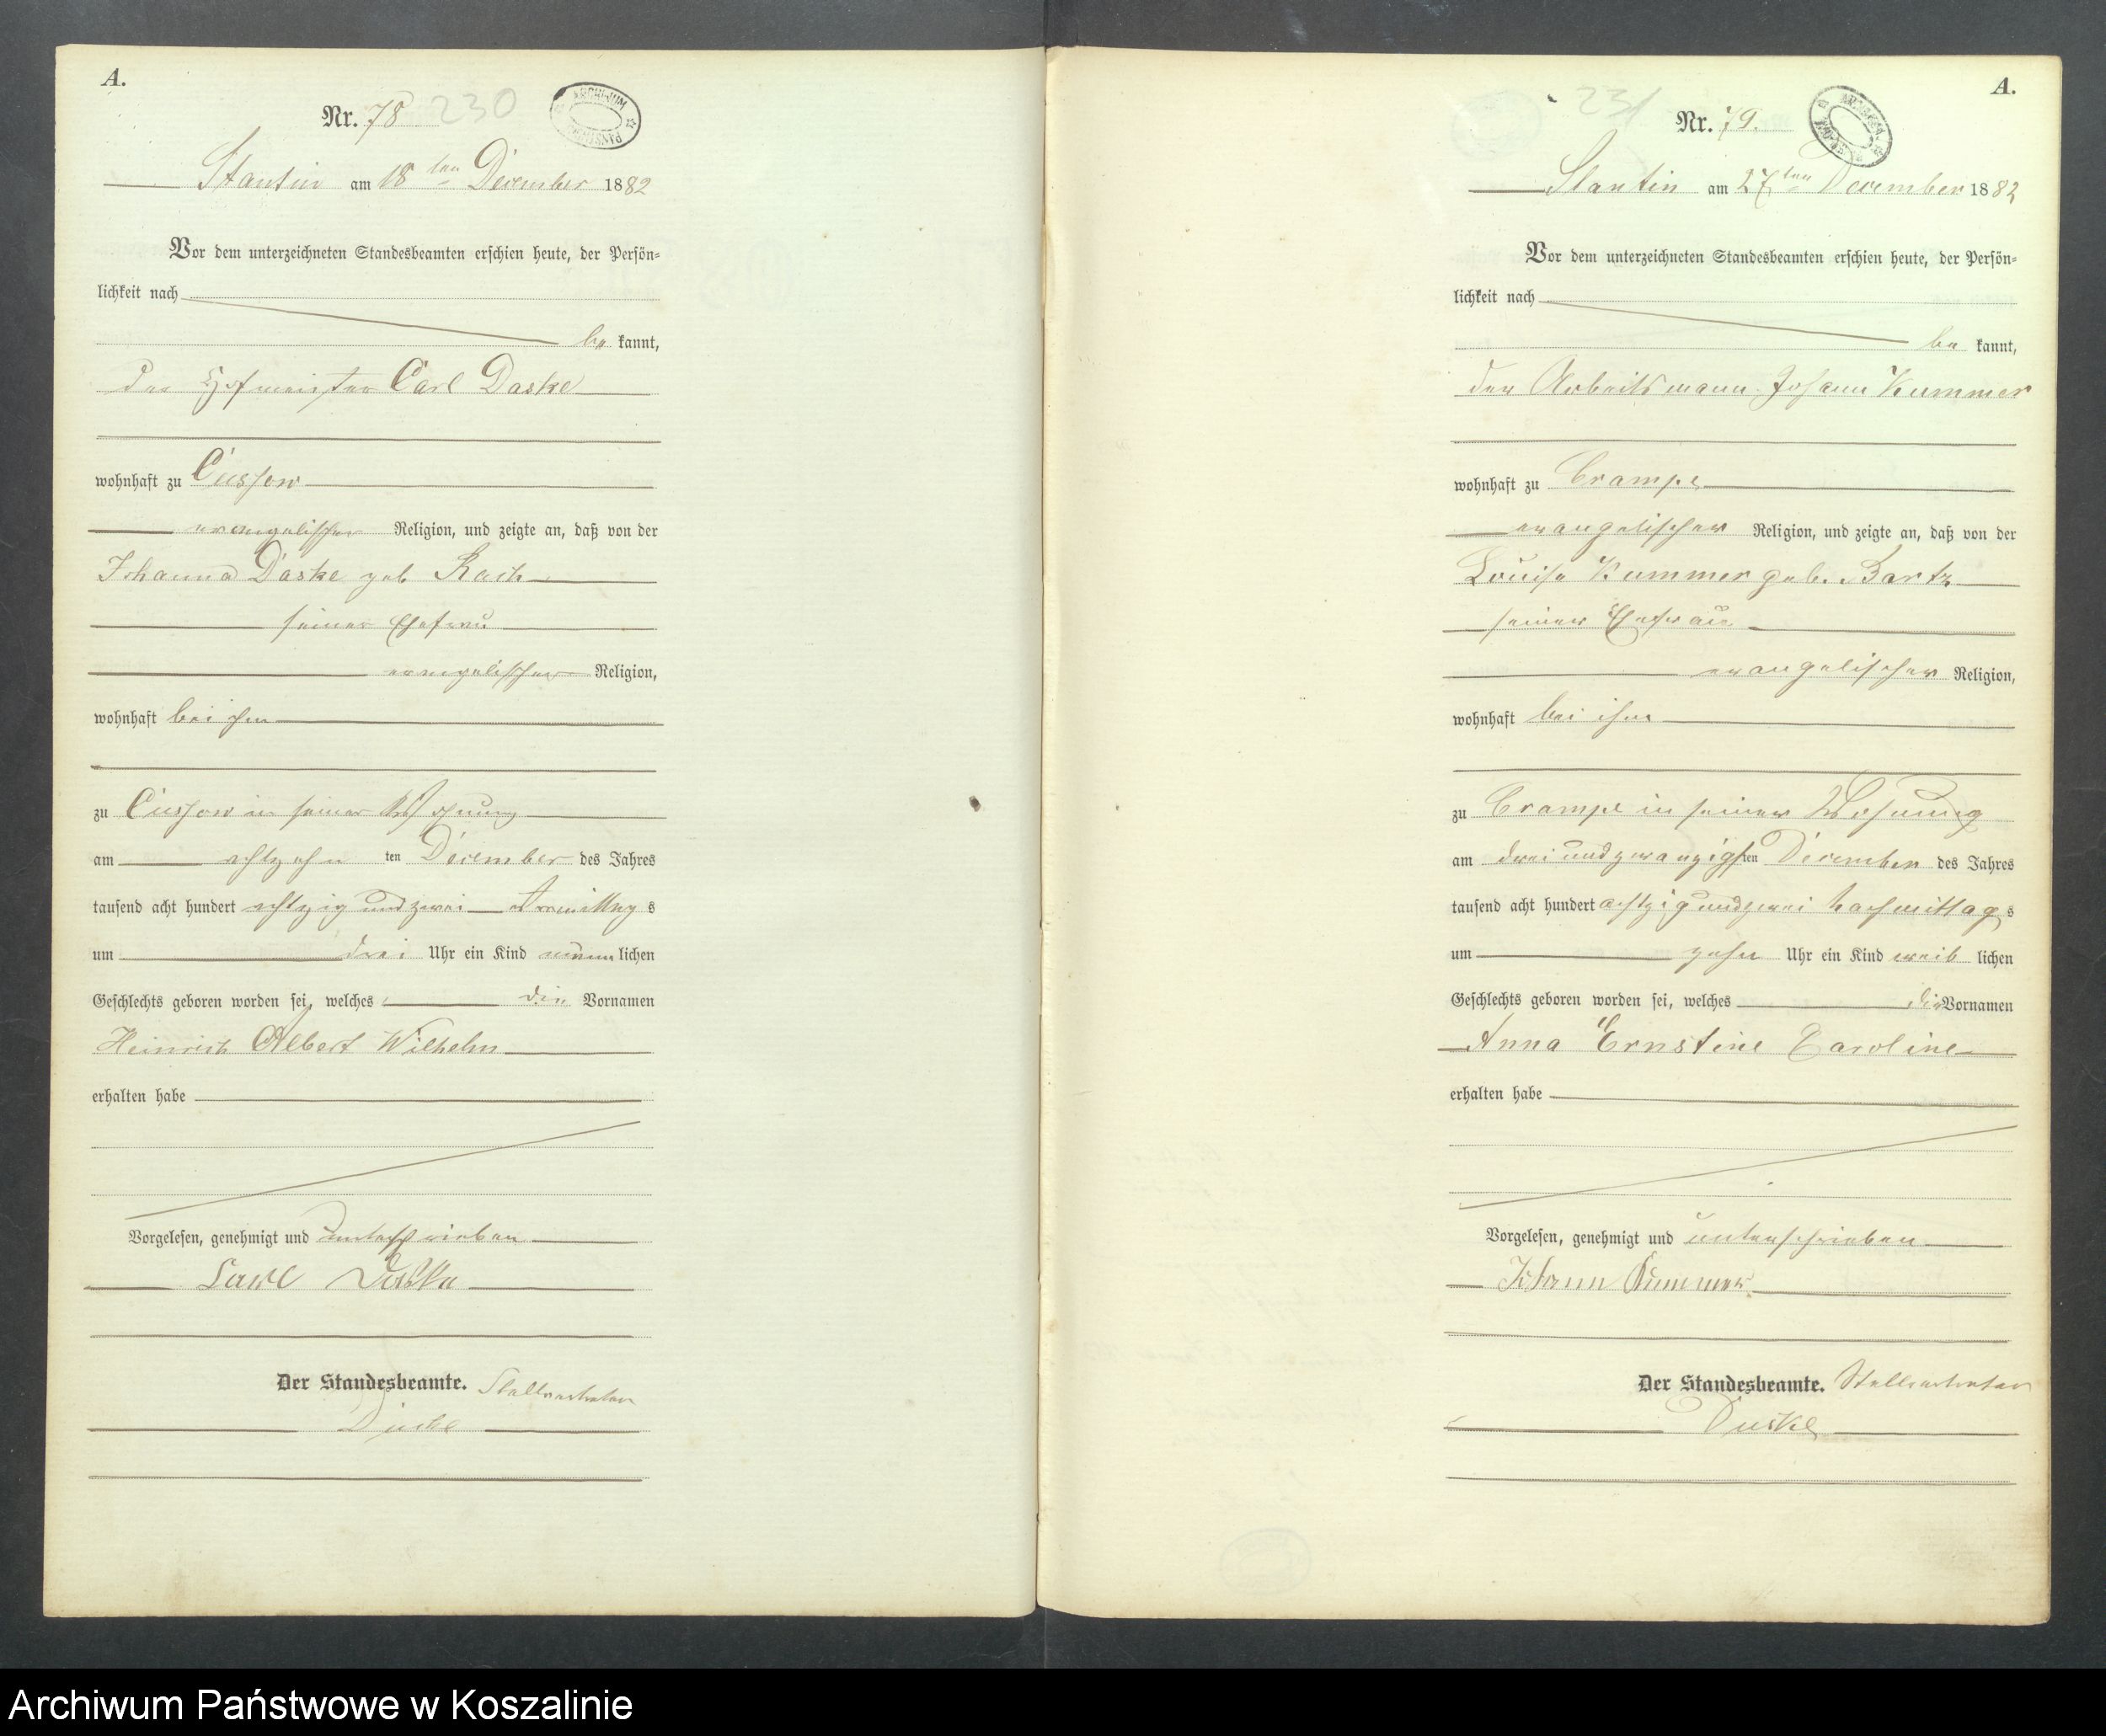 A.
Nr. 78 230
ARCHIWUM
Stantin am 18 ten December 1882
Vor dem unterzeichneten Standesbeamten erschien heute, der Persön-
lichkeit nach
be kannt,
der Hofmeister Carl Daske
wohnhaft zu Cussow
evangelischer Religion, und zeigte an, daß von der
Johanna Daske geb. Rach
seiner Ehefrau
evangelischer Religion,
wohnhaft bei ihm
zu Cussow in seiner Wohnung
am achtzehn ten December des Jahres
tausend acht hundert achtzig und zwei Vormittag s
um drei Uhr ein Kind männ lichen
Geschlechts geboren worden sei, welches die Vornamen
Heinrich Albert Wilhelm
erhalten habe
Vorgelesen, genehmigt und unterschrieben
Carl Daske
Der Standesbeamte. Stellvertreter
A.
231
Nr. 79.
Stantin am 27 ten December 1882
Vor dem unterzeichneten Standesbeamten erschien heute, der Persön-
lichkeit nach
be kannt,
der Arbeitsmann Johann Kummer
wohnhaft zu Crampe
evangelischer Religion, und zeigte an, daß von der
Louise Kummer geb. Bartz
seiner Ehefrau
evangelischer Religion,
wohnhaft bei ihm
zu Crampe in seiner Wohnung
am drei und zwanzigsten December des Jahres
tausend acht hundert achtzig und zwei Nachmittag s
um zehn Uhr ein Kind weib lichen
Geschlechts geboren worden sei, welches die Vornamen
Anna Ernstine Caroline
erhalten habe
Vorgelesen, genehmigt und unterschrieben
Johann Kummer.
Der Standesbeamte. Stellvertreter
Archiwum Państwowe w Koszalinie